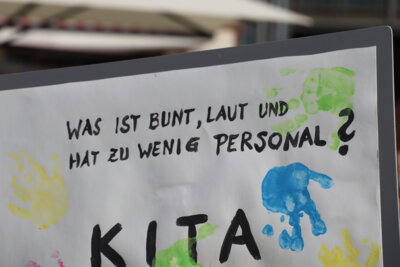 WAS IST BUNT, LAUT UND
HAT ZU WENIG PERSONAL?
KITA